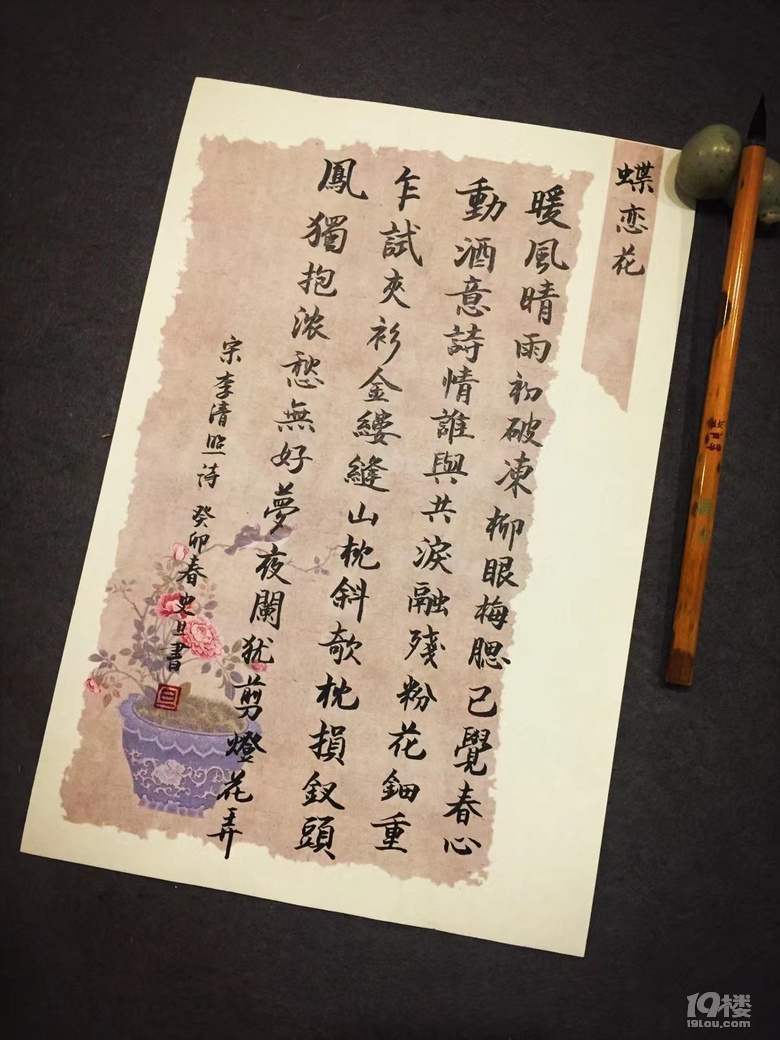 蝶恋花
暖風晴雨初破凍柳眼梅腮已覺春心
動酒意詩情誰與共淚融殘粉花鈿重
乍試夾衫金縷縫山枕斜欹枕損釵頭
鳳獨抱浓愁無好夢夜闌犹剪燈花弄
宋李清照诗 癸卯春史旦書
旦
19楼
19lou.com